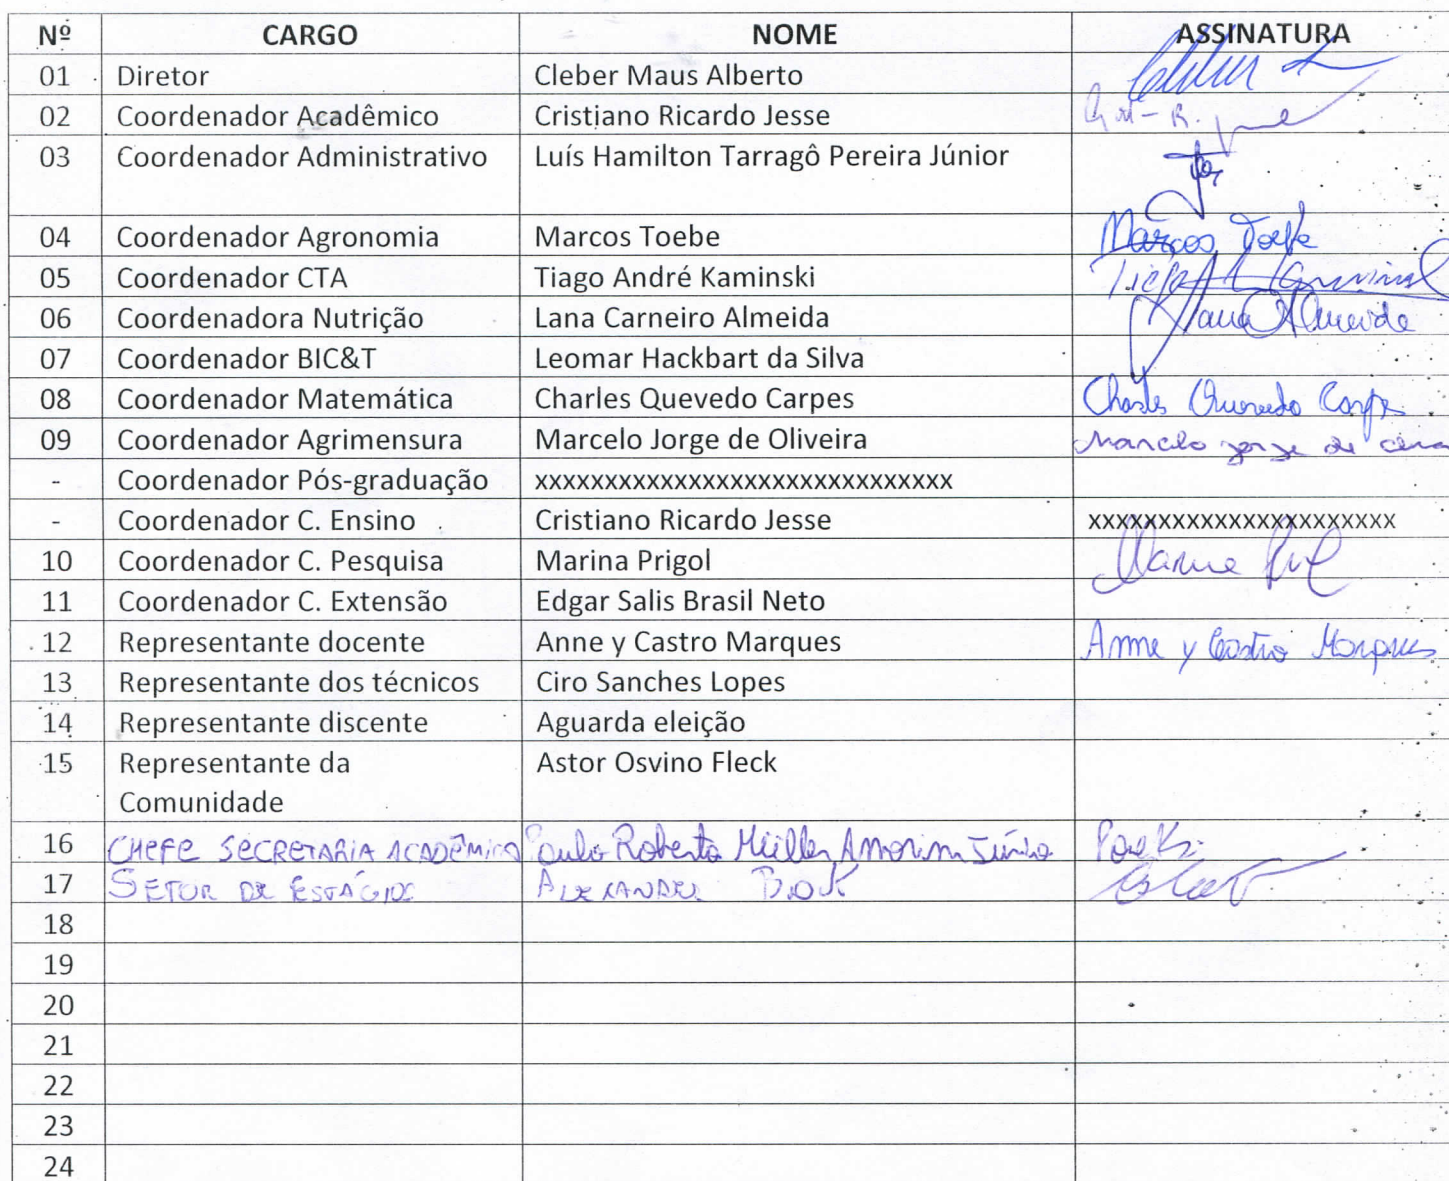 Nº CARGO NOME ASSINATURA
01 Diretor Cleber Maus Alberto
02 Coordenador Acadêmico Cristiano Ricardo Jesse
03 Coordenador Administrativo Luís Hamilton Tarragô Pereira Júnior
04 Coordenador Agronomia Marcos Toebe Marcos Toebe
05 Coordenador CTA Tiago André Kaminski
06 Coordenadora Nutrição Lana Carneiro Almeida Lana Almeida
07 Coordenador BIC&T Leomar Hackbart da Silva
08 Coordenador Matemática Charles Quevedo Carpes Charles Quevedo Carpes
09 Coordenador Agrimensura Marcelo Jorge de Oliveira Marcelo Jorge de
- Coordenador Pós-graduação xxxxxxxxxxxxxxxxxxxxxxxxxxxxxx
- Coordenador C. Ensino Cristiano Ricardo Jesse xxxxxxxxxxxxxxxxxxxxxx
10 Coordenador C. Pesquisa Marina Prigol
11 Coordenador C. Extensão Edgar Salis Brasil Neto
12 Representante docente Anne y Castro Marques Anne y Castro Marques
13 Representante dos técnicos Ciro Sanches Lopes
14 Representante discente Aguarda eleição
15 Representante da Astor Osvino Fleck
Comunidade
16 CHEFE SECRETARIA ACADÊMICA Paulo Roberto Müller Amorim Júnior
17 SETOR DE ESTÁGIOS ALEXANDRE
18
19
20
21
22
23
24